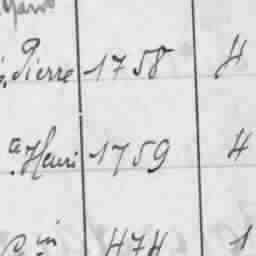 Pierre 1758 4
Henri 1759 4
474 1